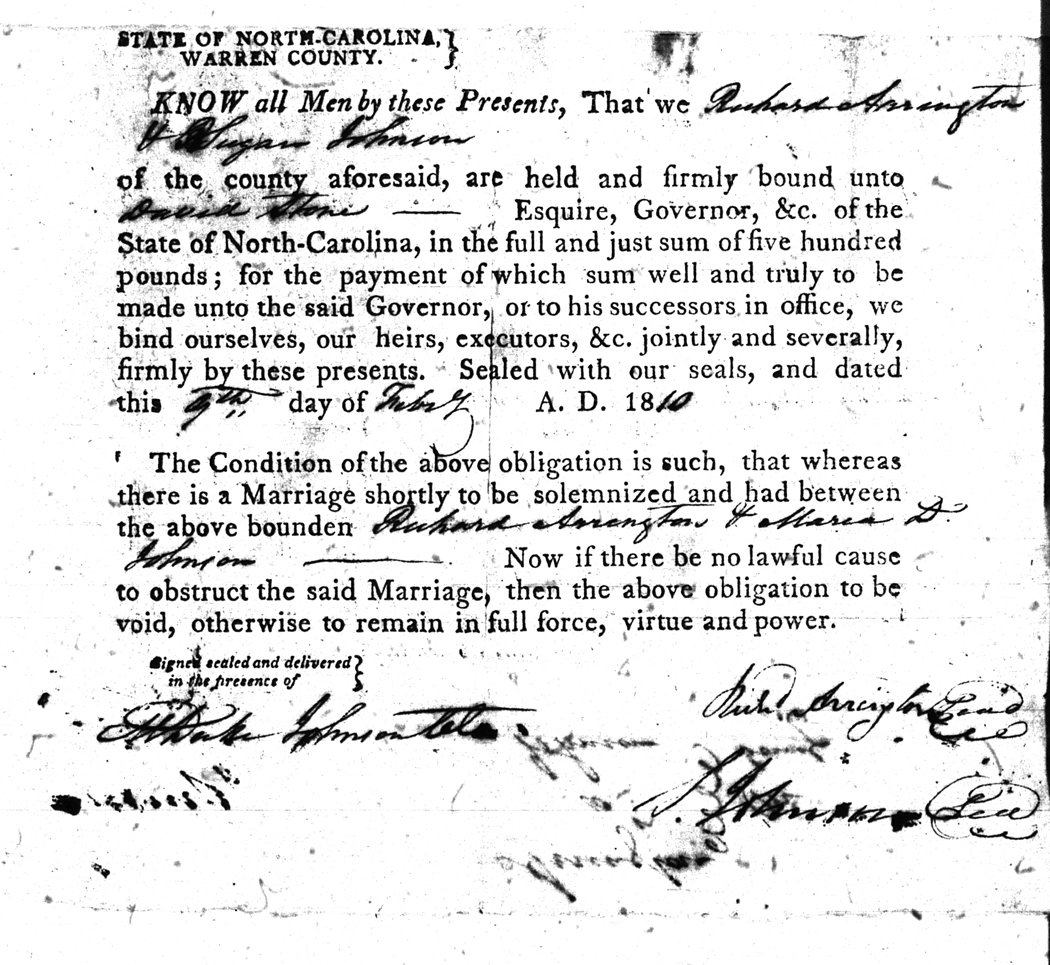 STATE OF NORTH-CAROLINA, }
WARREN COUNTY. }
KNOW all Men by these Presents, That we Richard Arrington
& Sugan Johnson
of the county aforesaid, are held and firmly bound unto
David Stone — Esquire, Governor, &c. of the
State of North-Carolina, in the full and just sum of five hundred
pounds; for the payment of which sum well and truly to be
made unto the said Governor, or to his successors in office, we
bind ourselves, our heirs, executors, &c. jointly and severally,
firmly by these presents. Sealed with our seals, and dated
this 9th day of Feby A. D. 1810
The Condition of the above obligation is such, that whereas
there is a Marriage shortly to be solemnized and had between
the above bounden Richard Arrington & Maria D.
Johnson — Now if there be no lawful cause
to obstruct the said Marriage, then the above obligation to be
void, otherwise to remain in full force, virtue and power.
Signed sealed and delivered }
in the presence of }
M Duke Johnson
Richd. Arrington Seal
S. Johnson Seal